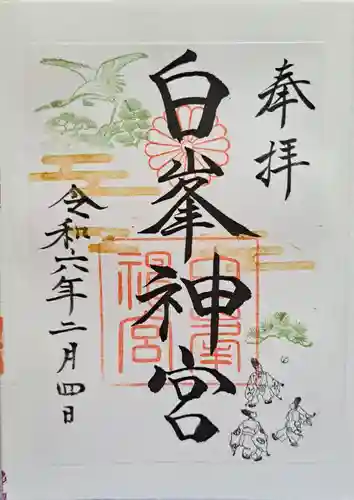 奉拝
白峯神宮
令和六年二月四日
白峯神宮